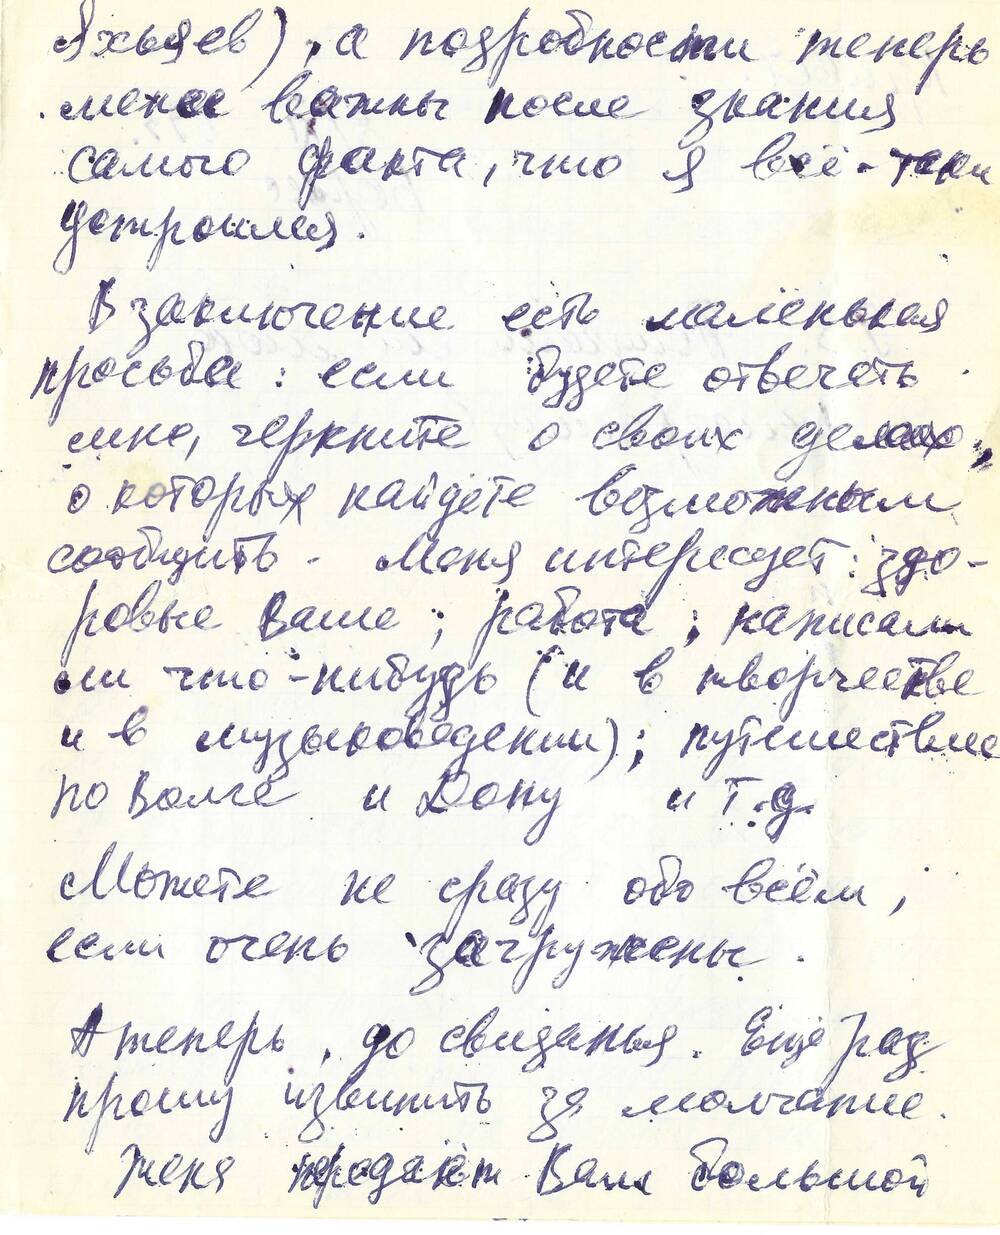 Яхъяев), а подробности теперь
менее важны после знания
самого факта, что я всё-таки
устроился.
В заключение есть маленькая
просьба: если будете отвечать
мне, черкните о своих делах,
о которых найдёте возможным
сообщить. Меня интересует: здо-
ровье Ваше; работа; написали
ли что-нибудь (и в творчестве
и в музыковедении); путешествие
по Волге и Дону и т.д.
Можете не сразу обо всём,
если очень загружены.
А теперь, до свиданья. Ещё раз
прошу извинить за молчание.
Женя передаёт Вам большой